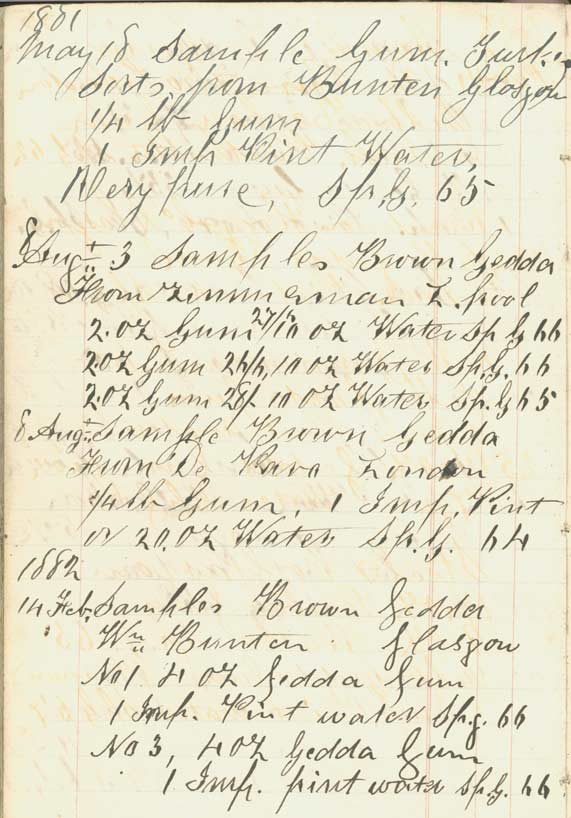 1881
May 18 Sample Gum. Turk.
Sorts, from Bunten Glasgow
1/4 lb Gum
1 Imp Pint Water,
Very pure, Sp.G. 65
8 Augt 3 Samples Brown Gedda
From Zimmerman L.pool
2.oz Gum 27/6 10 oz Water Sp G 66
2.oz Gum 26/6, 10 oz Water Sp.G. 66
2.oz Gum 28/- 10 oz Water Sp.G 65
8 Augt Sample Brown Gedda
From De Pava London
1/4 lb Gum, 1 Imp. Pint
or 20.oz Water Sp.G. 64
1882
14 Feb. Samples Brown Gedda
Wm Bunten Glasgow
No 1. 4 oz Gedda Gum
1 Imp. Pint water Sp.g. 66
No 3, 4 oz Gedda Gum
1 Imp. pint water Sp.G. 66